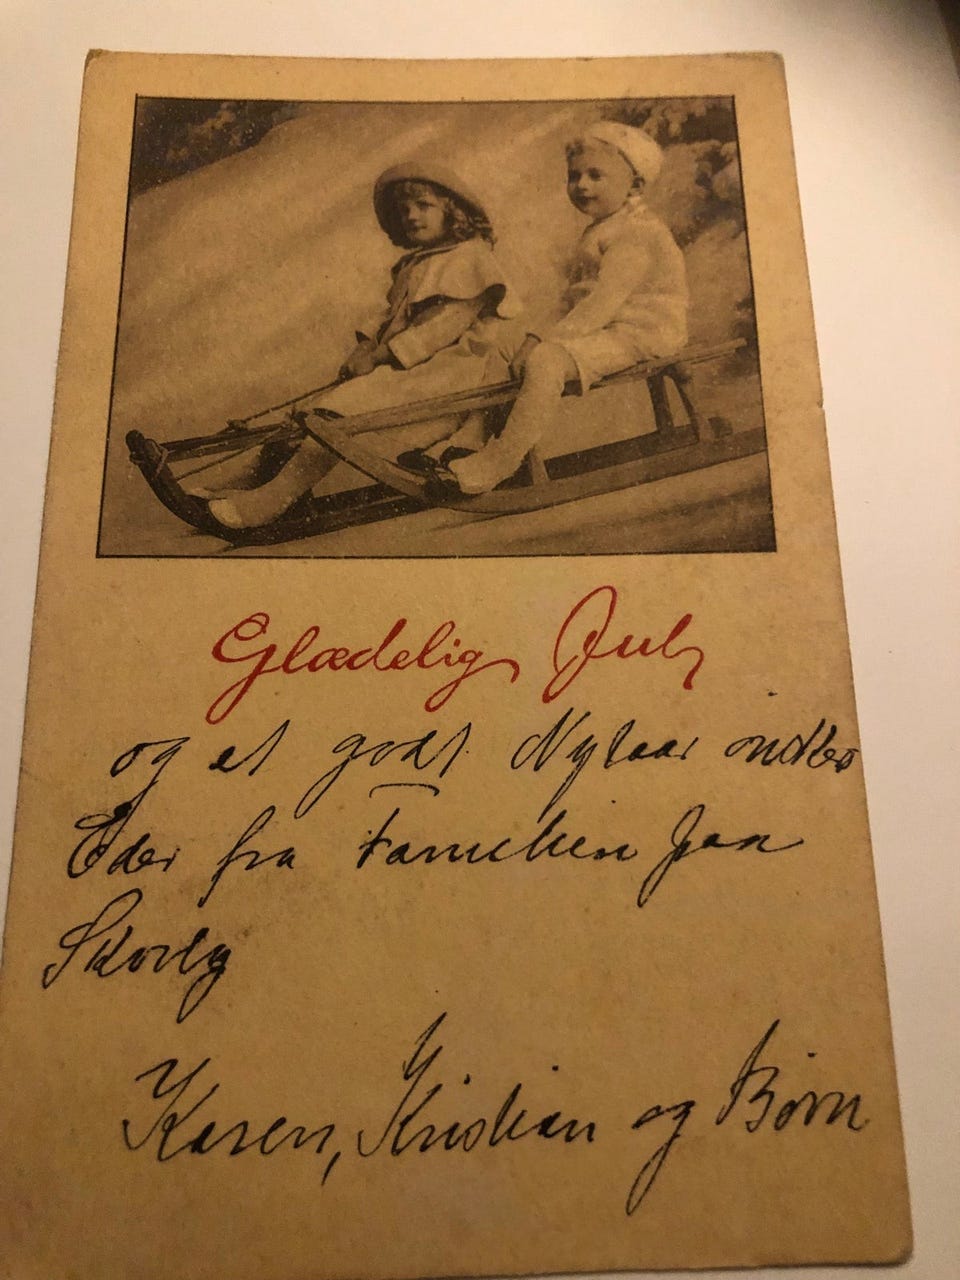 Glædelig Jul
og et godt Nytaar ønskes
Eder fra Familien paa
Skovly
Karen, Kristian og Børn